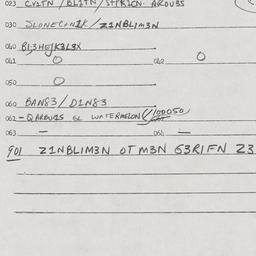 023 CVITN / BLITN / STPRICN. AROUBS
030 SLONECINIK / Z1NBLIM3N
040 BL3HOJK3L3X
041 O 042 O
050 O
060 BAN83 / D1N83
061 - QARBUIS GL WATERMELON (/100050)
063 — 064 —
901 Z1NBLIM3N OT M3N G3RIFN Z3